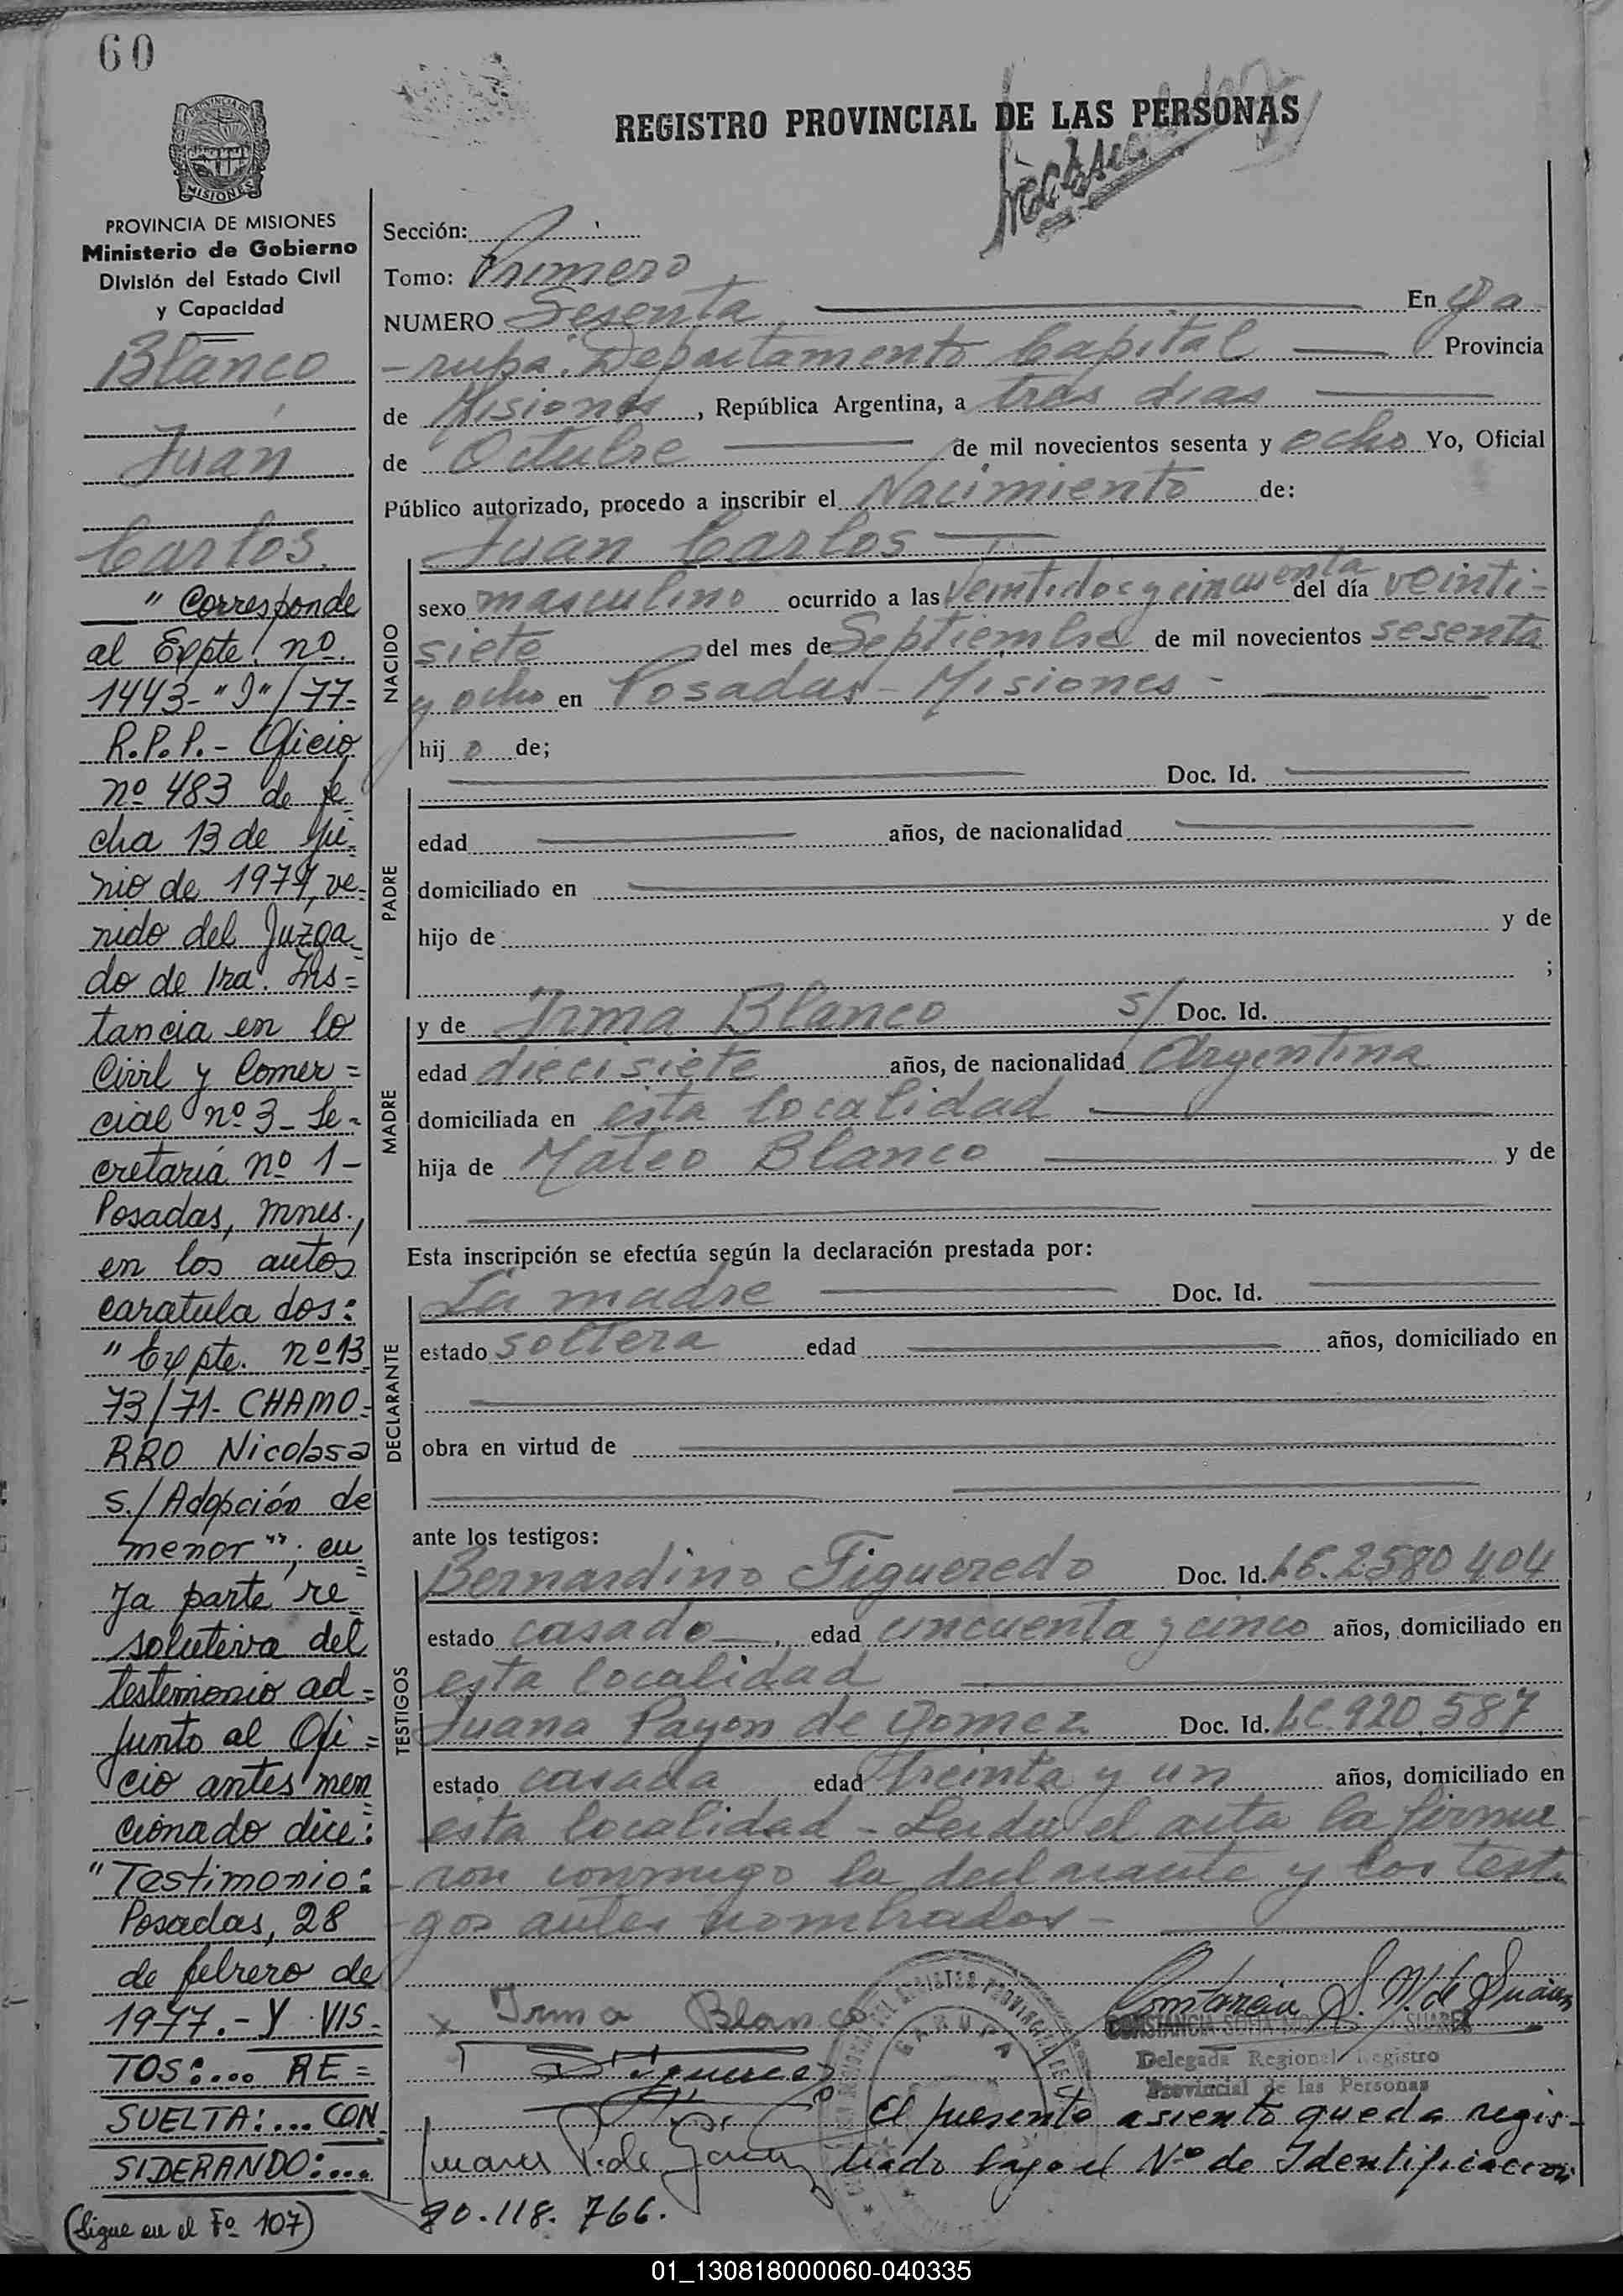 60
REGISTRO PROVINCIAL DE LAS PERSONAS
MISIONES
PROVINCIA DE MISIONES
Ministerio de Gobierno
División del Estado Civil
y Capacidad
Blanco
Juan
Carlos.
" Corresponde
al Expte. nº
1443-"J"/77-
R.P.P.- Oficio
nº 483 de fe-
cha 13 de ju-
nio de 1977, ve=
nido del Juzga-
do de 1ra. Ins=
tancia en lo
Civil y Comer=
cial nº 3- Se-
cretaría nº 1-
Posadas, Mnes.,
en los autos
caratula dos:
"Expte. nº 13
73/71- CHAMO=
RRO Nicolasa
s./Adopción de
menor"; cu=
ya parte re=
solutiva del
testimonio ad=
junto al Ofi=
cio antes men=
cionado dice:
"Testimonio:
Posadas, 28
de febrero de
1977.- Y VIS-
TOS:.... RE=
SUELTA:... CON
SIDERANDO:...
(Sigue en el Fº 107)
Sección:
Tomo: Primero
NUMERO Sesenta En Ga
-rupa. Departamento Capital Provincia
de Misiones, República Argentina, a tres dias
de Octubre de mil novecientos sesenta y ocho Yo, Oficial
Público autorizado, procedo a inscribir el Nacimiento de:
Juan Carlos
NACIDO
sexo masculino ocurrido a las veintidos y cincuenta del día veinti-
siete del mes de Septiembre de mil novecientos sesenta
y ocho en Posadas - Misiones -
hij o de;
Doc. Id.
PADRE
edad años, de nacionalidad
domiciliado en
hijo de y de
;
MADRE
y de Irma Blanco s/ Doc. Id.
edad diecisiete años, de nacionalidad Argentina
domiciliada en esta localidad
hija de Mateo Blanco y de
Esta inscripción se efectúa según la declaración prestada por:
DECLARANTE
La madre Doc. Id.
estado soltera edad años, domiciliado en
obra en virtud de
ante los testigos:
TESTIGOS
Bernardino Figueredo Doc. Id. L.E. 2580 404
estado casado edad cincuenta y cinco años, domiciliado en
esta localidad
Juana Payon de Gomez Doc. Id. LC. 920.587
estado casada edad treinta y un años, domiciliado en
esta localidad - Leida el acta la firma-
ron conmigo la declarante y los testi
gos antes nombrados -
x Irma Blanco
Constancia S. M. de Suárez
CONSTANCIA SOFIA SUAREZ
Delegada Regional Registro
Provincial de las Personas
GARUPA
El presente asiento queda regis-
trado bajo el Nº de Identificacion
20.118.766.
01_130818000060-040335